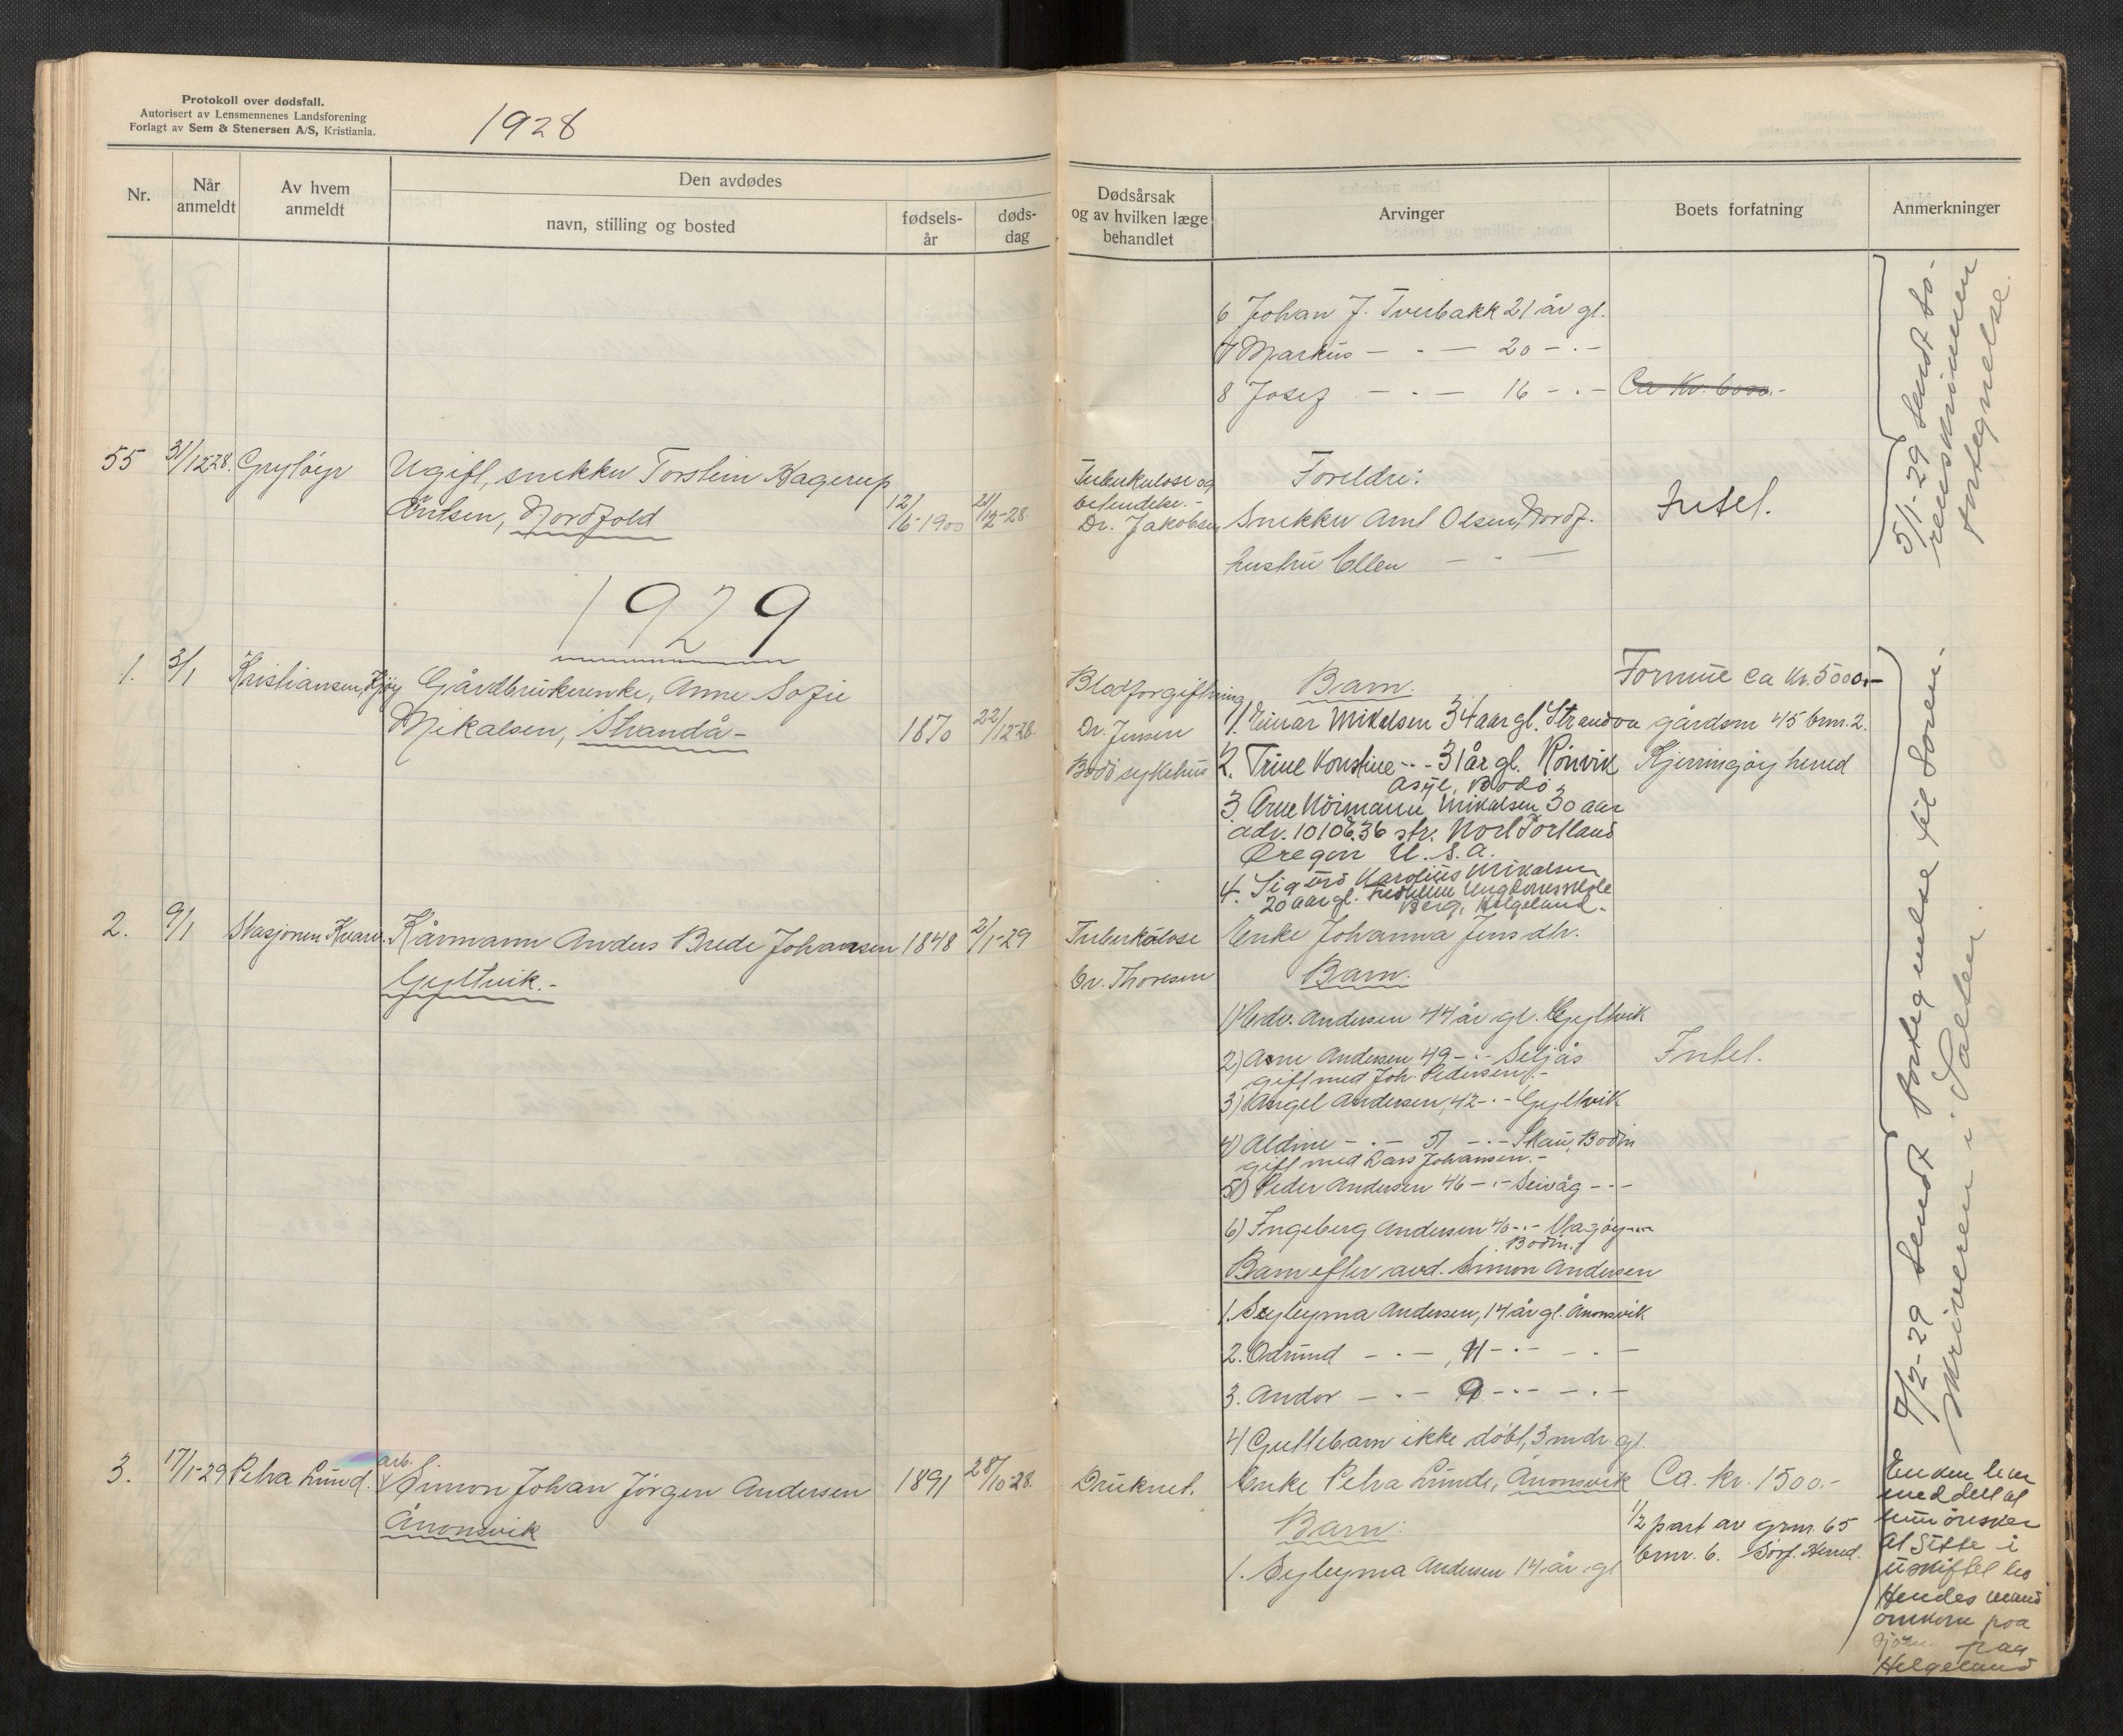 Protokoll over dødsfall.
Autorisert av Lensmennenes Landsforening
Forlagt av Sem & Stenersen A/S, Kristiania.
1928
Nr.
Når anmeldt
Av hvem anmeldt
Den avdødes
navn, stilling og bosted
fødsels-år
døds-dag
Dødsårsak og av hvilken læge behandlet
Arvinger
Boets forfatning
Anmerkninger
6 Johan J. Tverbakk 21 år gl.
7 Markus — · — 20 — · —
8 Josef — · — 16 — · — Ca Kr. 6000.-
5/1-29 Sendt So-
renskriveren
fortegnelse.
55 31/12-28. Grytöyr Ugift, snekker Torstein Hagerup
Arntsen, Nordfold 12/6-1900 21/12-28.
Tuberkulose og
betendelse.-
Dr. Jakobsen
Foreldre:
Snekker Arnt Olsen, Nordf.
hustru Ellen — · —
Intet.
1929
1. 3/1 Kristiansen, Kjöy Gårdbrukerenke, Anne Sofie
Mikalsen, Strandå- 1870 22/12-28.
Blodforgiftning
Dr. Jensen
Bodö sykehus
Barn.
1. Einar Mikalsen 34 aar gl. Strandaa
2. Trine Konstine - · - 31 år gl. Rönvik
Asyl, Bodö
3. Arne Nörmann Mikalsen 30 aar
adr. 1010 E. 36 str. Nort Portland
Oregon U. S. A.
4. Sigurd Karolius Mikalsen
20 aar gl. Ungdomsskole
Berg, Helgeland.
Formue ca Kr. 5000.-
gårdsnr 45 brnr. 2.
Kjerringöy herred
2. 9/1 Stasjonen Kvarv. Kårmann Anders Brede Johansen 1848 2/1-29
Gyltvik.-
Tuberkulose
Dr. Thoresen
Enke Johanna Jensdtr.
Barn.
1) Edv. Andersen 44 år gl. Gyltvik
2) Anne Andersen 49 - · - Seljås
gift med Joh. Pedersen.-
3) Angel Andersen, 42 - · - Gyltvik
4) Aldine - · — 51 — · - Skau, Bodin
gift med Lars Johansen.-
5) Peder Andersen 46 - · - Seivåg - · -
6) Ingeberg Andersen 40 - · -
Bodin.
Barn efter avd. Simon Andersen
1. Sylyma Andersen, 14 år gl. Ånonsvik
2. Odrund — · — , 11 - · — — · —
3. Andor — · — 9 - · - — · —
4) Guttebarn ikke döbt, 3 mdr. gl.
Intet.
7/2-29 Sendt fortegnelse til Soren-
skriveren i Salten.
3. 17/1-29 Petra Lund. arb.
Simon Johan Jörgen Andersen 1891 28/10-28.
Ånonsvik
Druknet.
Enke Petra Lunde, Ånonsvik
Barn:
1. Sylyma Andersen 14 år gl
Ca. kr. 1500.-
1/2 part av grnr. 65
brnr. 6. Sörf. Herred.
Enken
meddelt at
hun önsker
at Sitte i
uskiftet bo
Hendes mand
omkom paa
paa
Helgeland